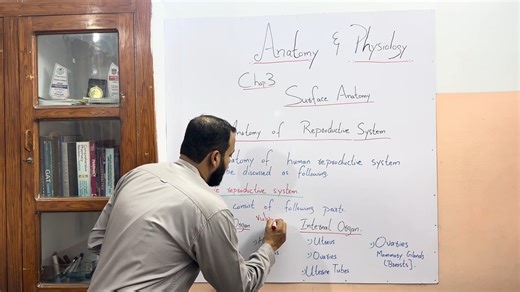 Anatomy & Physiology
Chap3
Surface Anatomy
Anatomy of Reproductive System
natomy of human reproductive system
be discussed as following.
e reproductive system
consist of following
Organ
Internal Organ.
Uterus
Ovaries
Uterine Tubes
Ovaries
Mammary Glands
(Breasts).
GAT